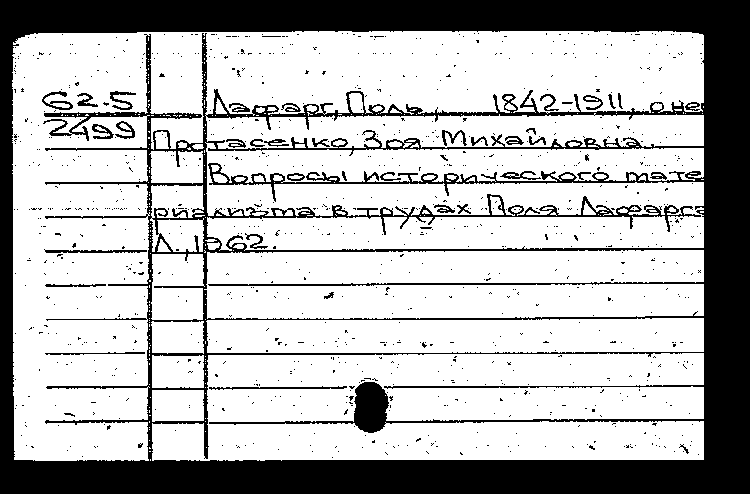 62.5 Лафарг, Поль, 1842-1911, о нем
2499 Протасенко, Зоя Михайловна.
Вопросы исторического мате
риализма в трудах Поля Лафарга
Л., 1962.